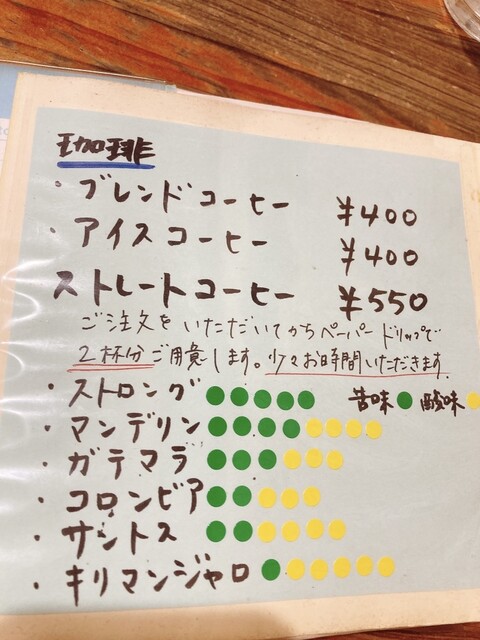 珈琲
・ブレンドコーヒー ¥400
・アイスコーヒー ¥400
ストレートコーヒー ¥550
ご注文をいただいてからペーパードリップで
2杯分ご用意します。少々お時間いただきます
・ストロング 苦味 酸味
・マンデリン
・ガテマラ
・コロンビア
・サントス
・キリマンジャロ